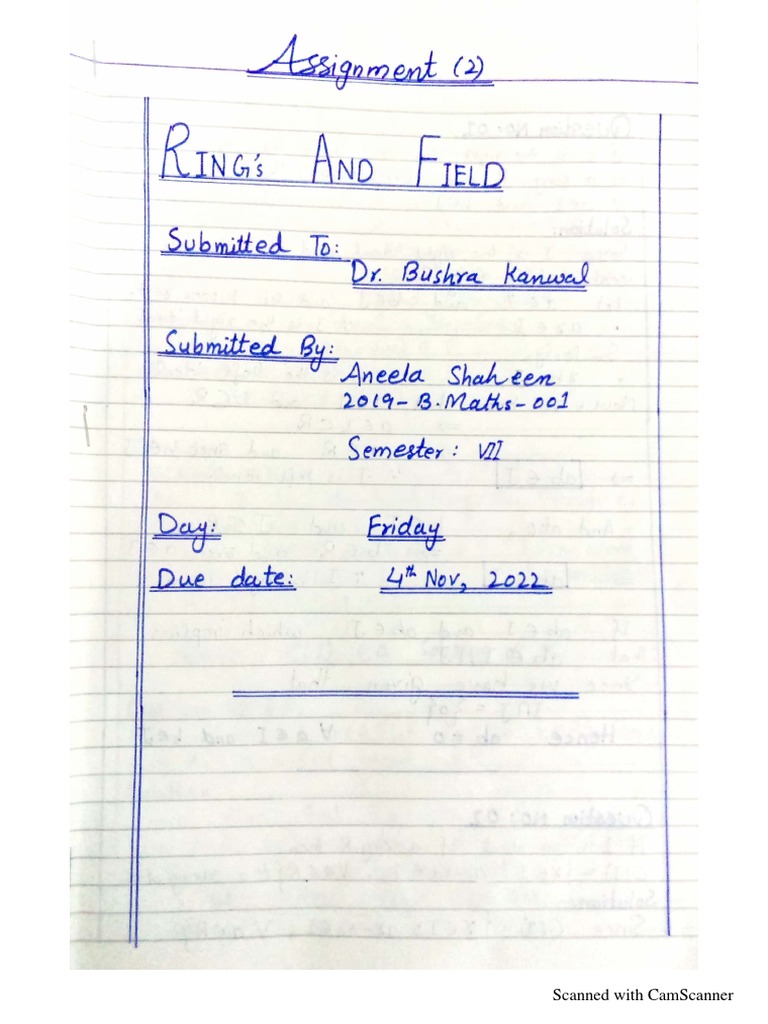 Assignment (2)
RING's AND FIELD
Submitted To:
Dr. Bushra Kanwal
Submitted By:
Aneela Shaheen
2019-B.Maths-001
Semester: VII
Day: Friday
Due date: 4th Nov, 2022
Scanned with CamScanner